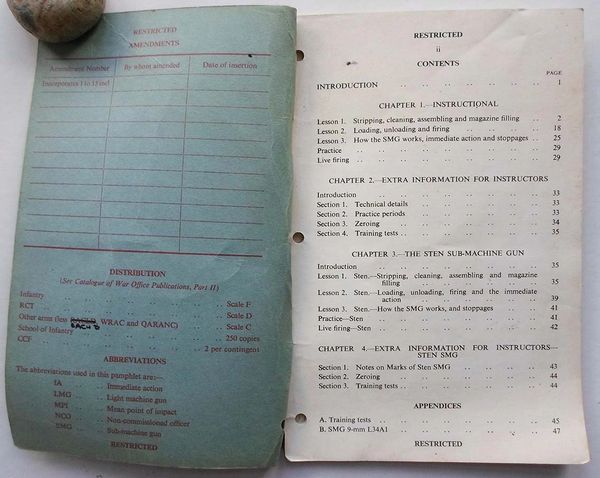 RESTRICTED
AMENDMENTS
Amendment Number By whom amended Date of insertion
Incorporates 1 to 15 incl
DISTRIBUTION
(See Catalogue of War Office Publications, Part II)
Infantry .. .. Scale F
RCT .. .. Scale D
Other arms (less WRAC and QARANC) Scale C
School of Infantry .. .. 250 copies
CCF .. .. 2 per contingent
ABBREVIATIONS
The abbreviations used in this pamphlet are:—
IA .. .. Immediate action
LMG .. .. Light machine gun
MPI .. .. Mean point of impact
NCO .. .. Non-commissioned officer
SMG .. .. Sub-machine gun
RESTRICTED
RESTRICTED
ii
CONTENTS
PAGE
INTRODUCTION .. .. .. .. .. .. 1
CHAPTER 1.—INSTRUCTIONAL
Lesson 1. Stripping, cleaning, assembling and magazine filling .. 2
Lesson 2. Loading, unloading and firing .. .. .. 18
Lesson 3. How the SMG works, immediate action and stoppages .. 25
Practice .. .. .. .. .. .. 29
Live firing .. .. .. .. .. .. 29
CHAPTER 2.—EXTRA INFORMATION FOR INSTRUCTORS
Introduction .. .. .. .. .. .. 33
Section 1. Technical details .. .. .. .. 33
Section 2. Practice periods .. .. .. .. 33
Section 3. Zeroing .. .. .. .. .. 34
Section 4. Training tests .. .. .. .. .. 35
CHAPTER 3.—THE STEN SUB-MACHINE GUN
Introduction .. .. .. .. .. .. 35
Lesson 1. Sten.—Stripping, cleaning, assembling and magazine
filling .. .. .. .. .. 35
Lesson 2. Sten.—Loading, unloading, firing and the immediate
action .. .. .. .. .. 39
Lesson 3. Sten.—How the SMG works, and stoppages .. .. 41
Practice—Sten .. .. .. .. .. .. 41
Live firing—Sten .. .. .. .. .. .. 42
CHAPTER 4.—EXTRA INFORMATION FOR INSTRUCTORS—
STEN SMG
Section 1. Notes on Marks of Sten SMG .. .. .. 43
Section 2. Zeroing .. .. .. .. .. 44
Section 3. Training tests .. .. .. .. .. 44
APPENDICES
A. Training tests .. .. .. .. .. .. 45
B. SMG 9-mm L34A1 .. .. .. .. .. 47
RESTRICTED